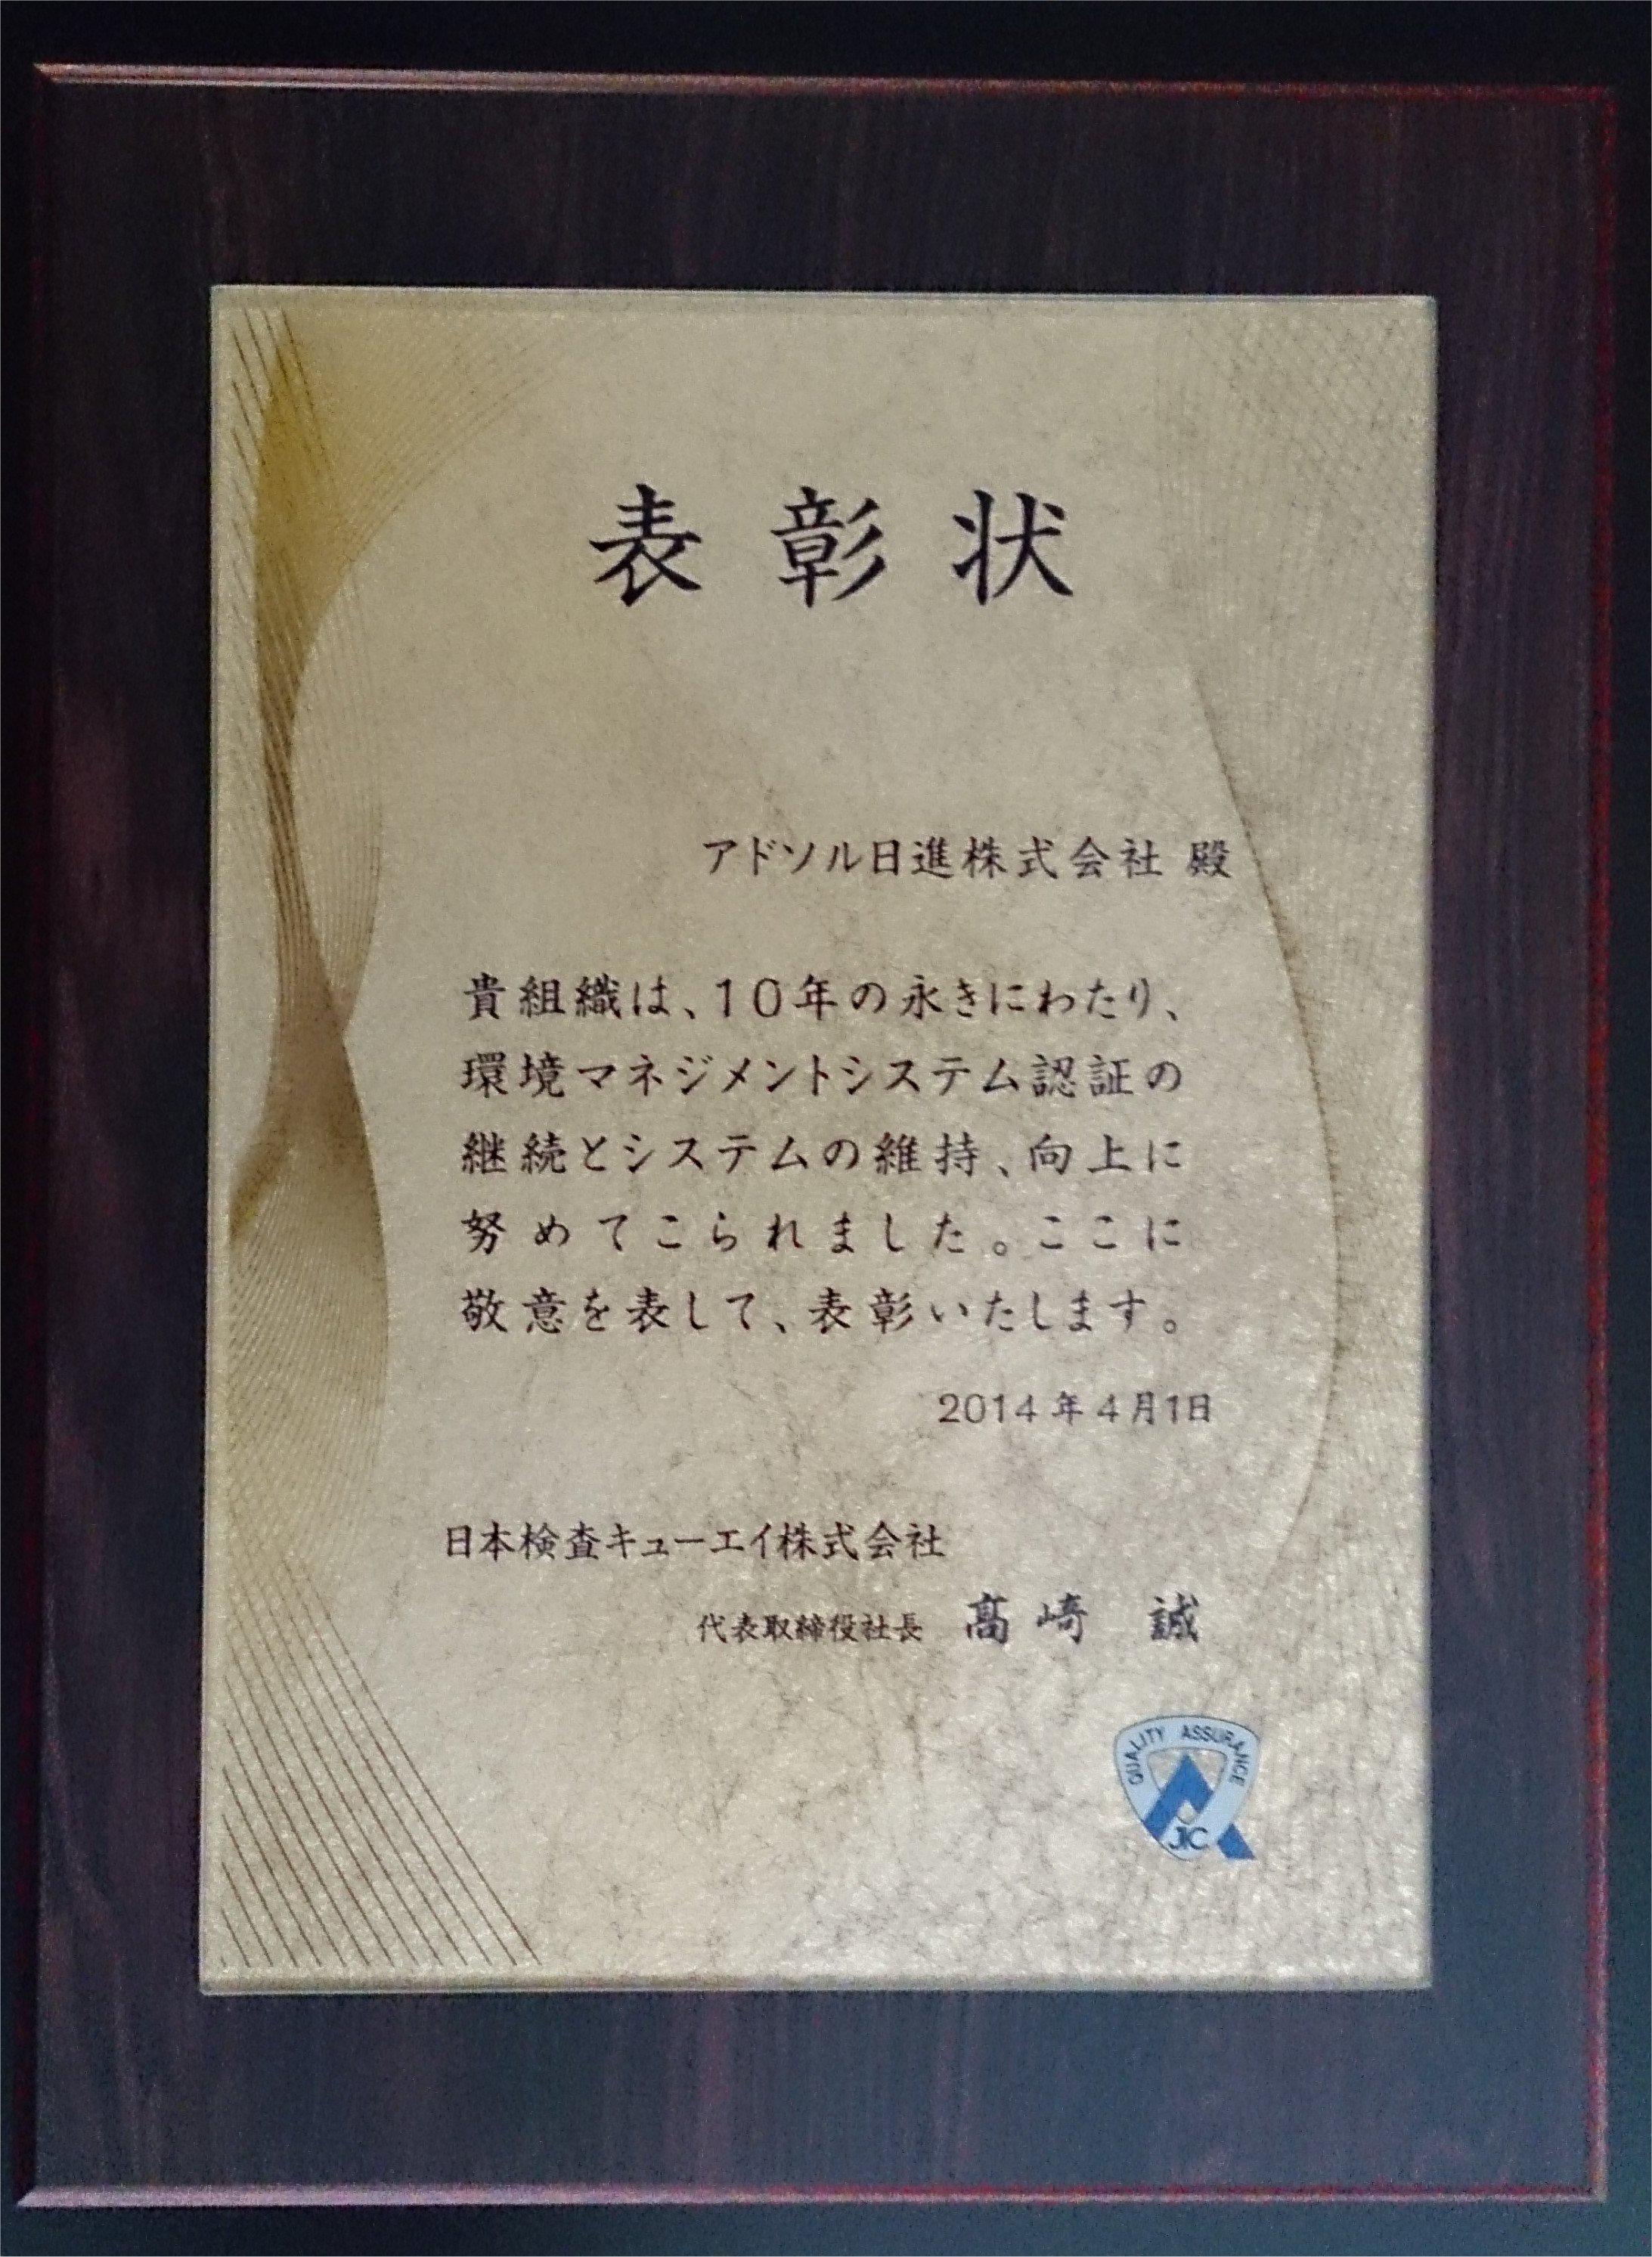 表彰状
アドソル日進株式会社 殿
貴組織は、10年の永きにわたり、
環境マネジメントシステム認証の
継続とシステムの維持、向上に
努めてこられました。ここに
敬意を表して、表彰いたします。
2014年4月1日
日本検査キューエイ株式会社
代表取締役社長 髙﨑 誠
QUALITY ASSURANCE
JIC